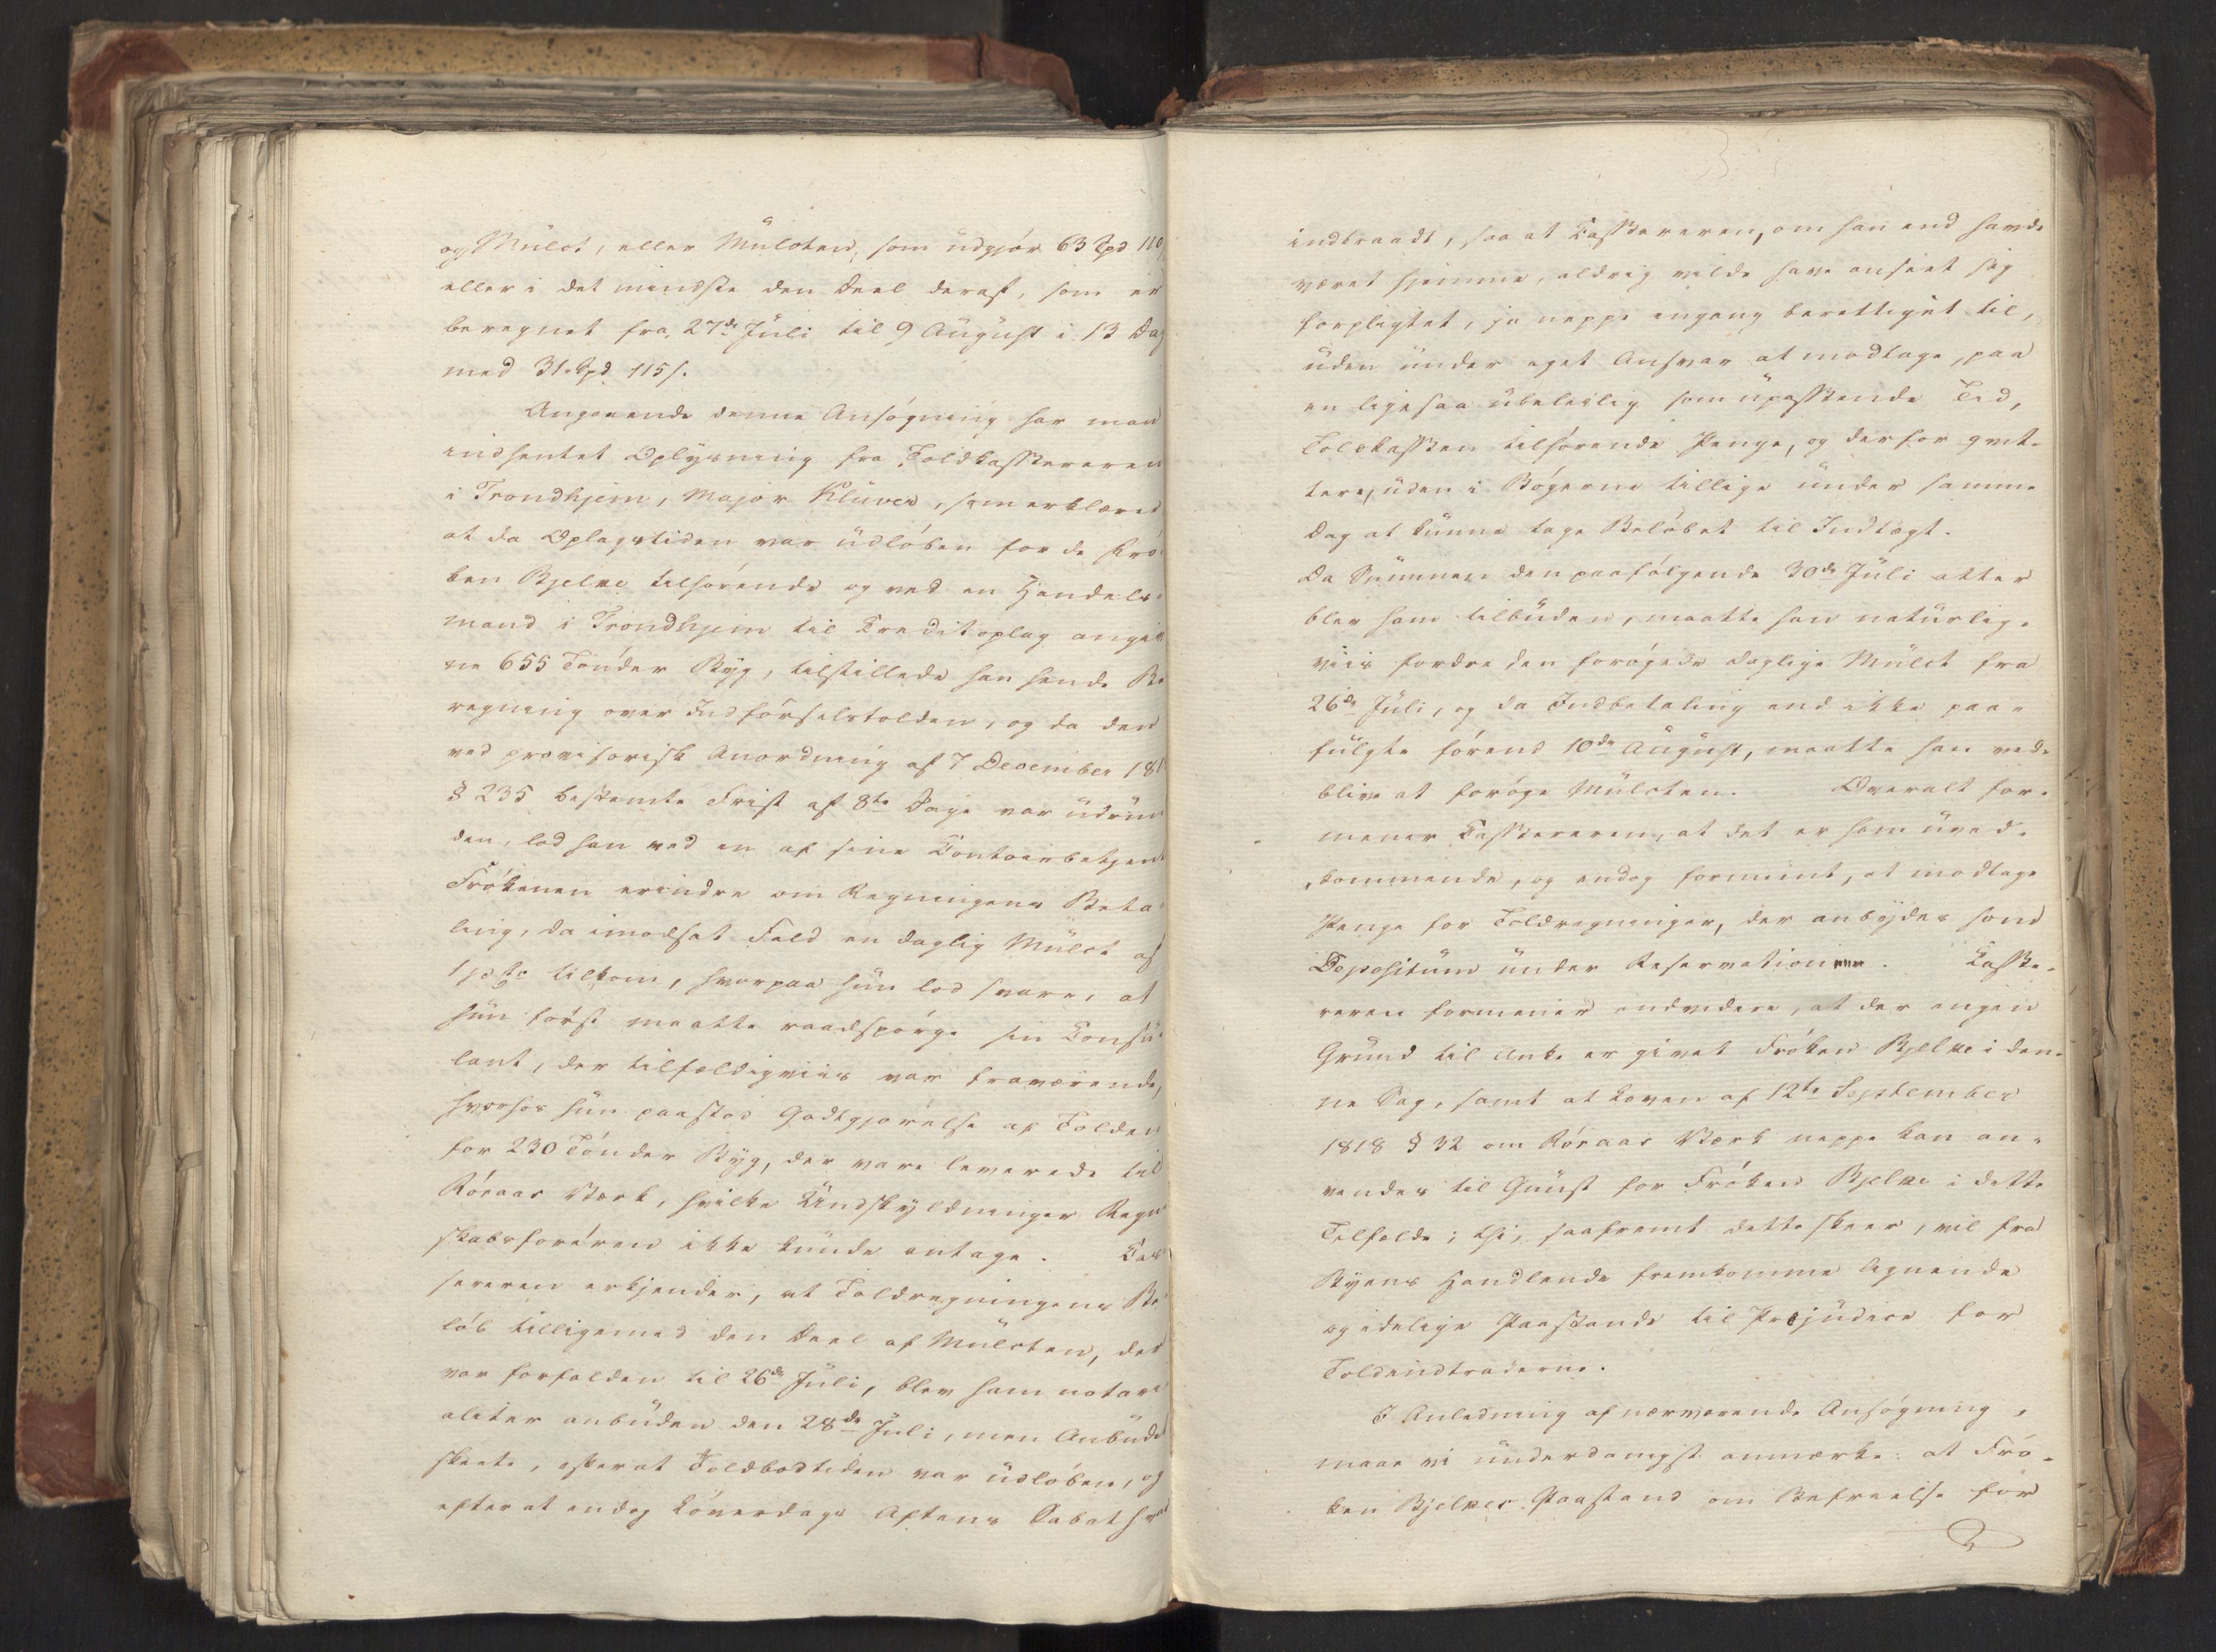 og Mülct, eller Mülcten, som üdgjör 63 Spd 110
eller i det mindste den Deel deraf, som er
beregnet fra 27de Jüli til 9 Aügüst i 13 Dag
med 31 Spd 115 s.
Angaaende denne Ansögning har man
indhentet Oplysning fra Toldkassereren
i Trondhjem, Major Klüver, som erklærer
at da Oplagstiden var üdlöben for de Frö-
ken Bjelke tilhörende og ved en Handels-
mand i Trondhjem til Creditoplag angiv
ne 655 Tönder Byg, tilstillede han hende Be
regning over Indförselstolden, og da den
ved provisorisk Anordning af 7 December 181
§ 235 bestemte Frist af 8te Dage var üdrün
den, lod han ved en af sine Contoirbetjent
Frökenen erindre om Regningens Beta-
ling, da imodsat Fald en daglig Mülct af
1 pCto tilkom, hvorpaa hün lod svare, at
hün först maatte raadspörge sin Consü-
lent, der tilfældigviis var fraværende,
hvorhos hün paastod Godtgjörelse af Tolden
for 230 Tönder Byg, der vare leverede til
Röraas Værk, hvilke Undskyldninger Regn
skabsföreren ikke künde antage. Cas
sereren erkjender, at Toldregningens Be-
löb tilligemed den Deel af Mülcten, der
var forfalden til 26de Jüli, blev ham notari
aliter anbüden den 28de Jüli, men Anbüdet
skeete, efterat Toldbodtiden var üdlöben, og
efterat endog Löverdags Aftens Sabat hvar
indbraadt, saa at Cassereren, om han end havde
været hjemme, aldrig vilde have anseet sig
forpligtet, ja neppe engang berettiget til,
üden ünder eget Ansvar at modtage, paa
en ligesaa übeleilig som üpassende Tid,
Toldkassen tilhörende Penge, og derfor qvit-
tere, üden i Bögerne tillige ünder samme
Dag at künne tage Belöbet til Indtægt.
Da Sümmen den paafölgende 30de Jüli atter
blev ham tilbüden, maatte han natürlig-
viis fordre den forögede daglige Mülct fra
26de Jüli, og da Indbetaling end ikke paa-
fülgte förend 10de Aügüst, maatte han ved-
blive at foröge Mülcten. Overalt for-
mener Cassereren, at det er ham üved-
kommende, og endog formeent, at modtage
Penge for Toldregninger, der anbydes som
Depositüm ünder Reservationer. Casse-
reren formener endvidere, at der ingen
Gründ til Anke er givet Fröken Bjelke i den-
ne Sag, samt at Loven af 12te September
1818 § 32 om Röraas Værk neppe kan an-
vendes til Günst for Fröken Bjelke i dette
Tilfælde; thi, saafremt dette skeer, vil fra
Byens Handlende fremkomme lignende
og idelige Paastande til Præjüdice for
Toldindtraderne.
I Anledning af nærværende Ansögning,
maae vi ünderdanigst anmærke: at Frö-
ken Bjelkes Paastand om Befrielse for